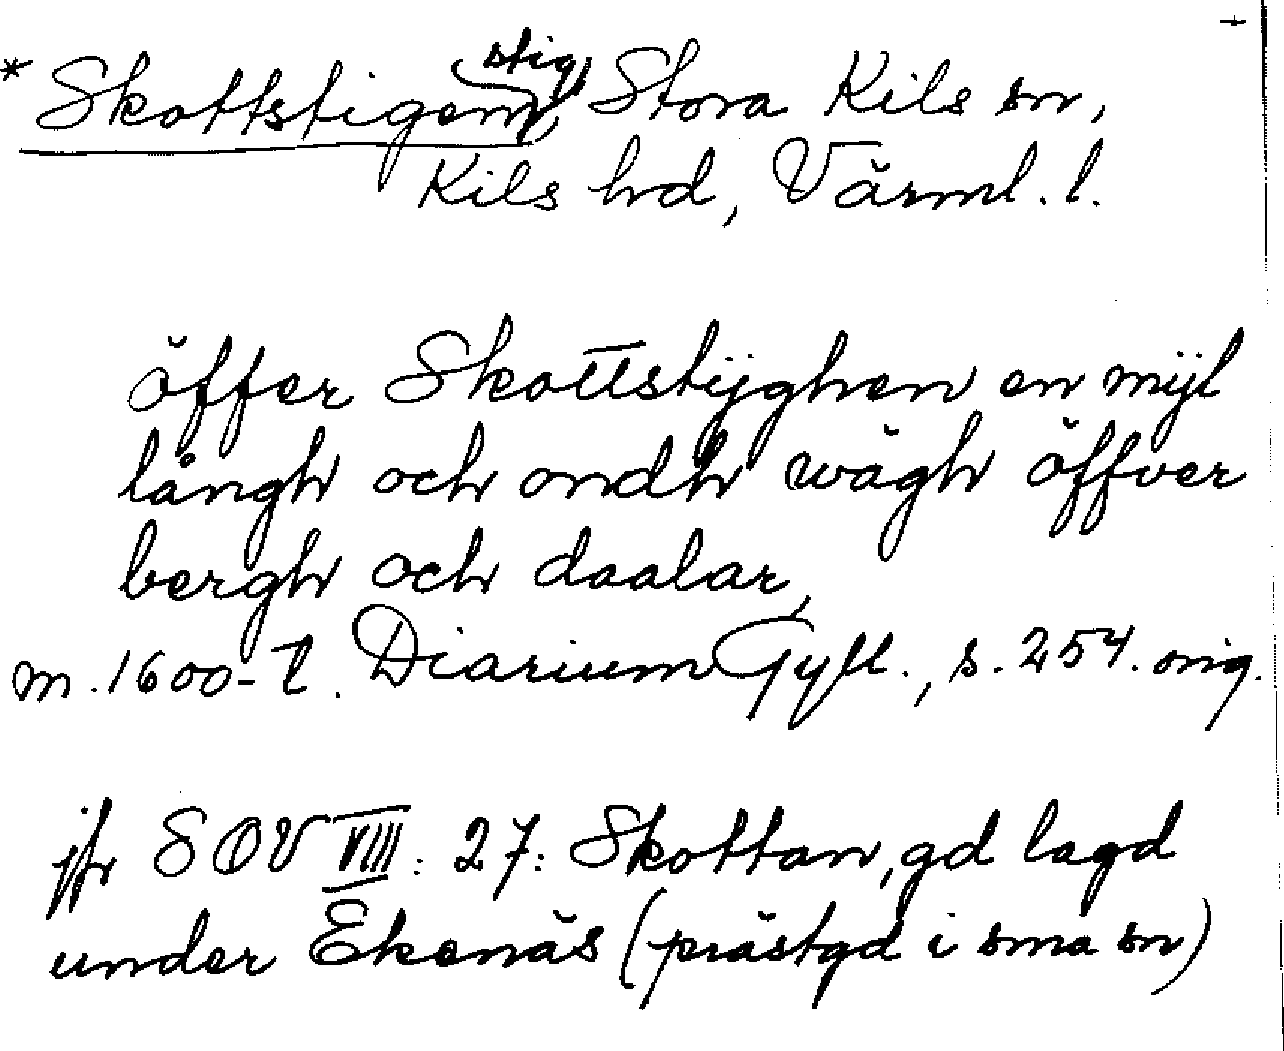 *Skottstigen, (stig) Stora Kils sn,
Kils hd, Värml. l.
öffer Skottstÿghen en mÿl
långh och ondh wägh öffver
bergh och daalar,
m. 1600-t. Diarium Gyll., s. 254. orig.
jfr SOV VIII: 27: Skottan, gd lagd
under Ekenäs (prästgd i sma sn)